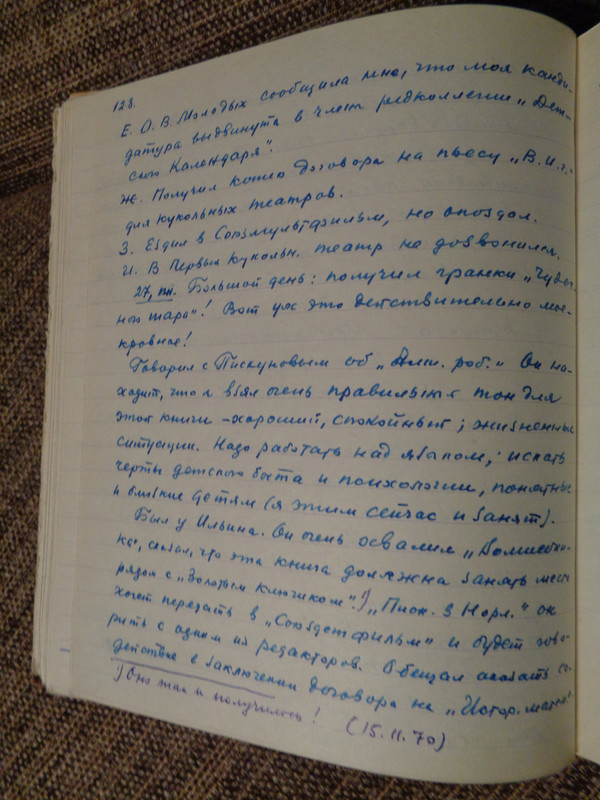 128.
Е. О.В. Молодых сообщила мне, что моя канди-
датура выдвинута в члены редколлегии „Дет-
ского Календаря".
Ж. Получил копию договора на пьесу „В.И.г."
для кукольных театров.
З. Ездил в Союзмультфильм, но опоздал.
И. В Первый кукольн. театр не дозвонился.
27, пн. Большой день: получил гранки „Чудес-
ного шара"! Вот уж это действительно мое-
кровное!
Говорил с Пискуновым об „Алт. роб." Он на-
ходит, что я взял очень правильный тон для
этой книги - хороший, спокойный; жизненные
ситуации. Надо работать над языком; искать
черты детского быта и психологии, понятные
и близкие детям (я этим сейчас и занят).
Был у Ильина. Он очень восхвалил „Волшебни-
ка", сказал, что эта книга должна занять место
рядом с „Золотым ключиком".¹) „Пион. в Норл." он
хочет передать в „Союздетфильм" и будет гово-
рить с одним из редакторов. Обещал оказать со-
действие в заключении договора на „Истор. маяка"
¹) Оно так и получилось! (15.11.70)